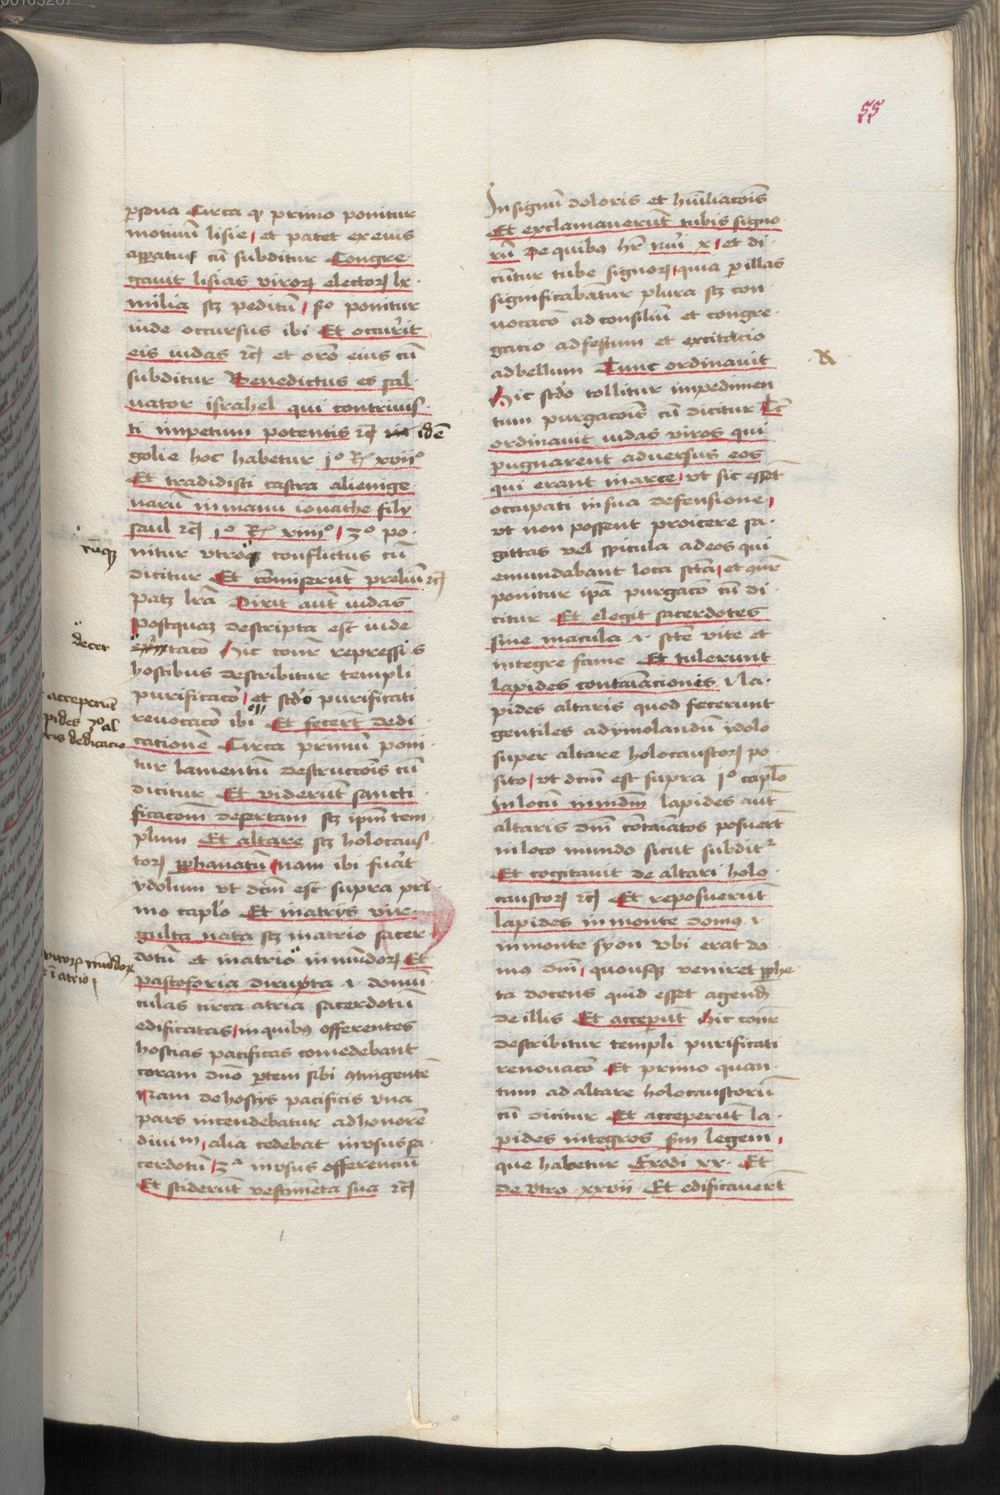 55
persona Circa qd primo ponitur
motiuū lisie et patet ex eius
apparatus cū subditur Congre
gauit lisias virorꝝ electorꝝ lx
milia scꝫ peditum / sᵒ ponitur
iude occursus ibi Et occurrit
eis iudas ⁊cꝫ et oro eius cū
subditur Benedictus es sal
uator israhel qui contriuis
ti impetum potentis ⁊cꝫ idē
golie hoc habetur jᵒ Rꝫ xviiᵒ
Et tradidisti castra alienige
narū in manu ionathe filij
saul ⁊cꝫ jᵒ Rꝫ xiiiiᵒ / 3ᵒ po
nitur vtroqꝫ conflictus cū
dicitur Et cōmiserūt preliū ⁊cꝫ
patꝫ lrā Dixit aut iudas
Postquaꝫ descripta est iude
tacō Hic con̄r repressis
hostibus describitur templi
purificacō / et scd̄o purificati
reuocacō ibi Et fecer̄t dedi
cationē Circa primū poni
tur lamentū destruccōis cū
dicitur Et viderūt sancti
ficacōm desertam scꝫ ipm̄ tem
plum Et altare scꝫ holocaus
torꝝ prophanatū nam ibi fuit
ydolum vt dcm̄ est supra pri
mo capło Et in atrijs vir
gulta nata scꝫ in atrio sacer
dotū et in atrio inmūdorꝝ Et
pastoforia dirupta .i. domū
culas circa atria sacerdotū
edificatas / in quibꝰ offerentes
hostias pacificas comedebant
coram dn̄o ꝑtem sibi ↄtingentē
Nam de hostijs pacificis vna
pars incendebatur ad honorē
diuinū / alia cedebat in vsus sa
cerdotū / 3ᵃ in vsus offerenciū
Et sciderūt vestimēta sua ⁊cꝫ
rūqꝫ
decer
acceperūt
pides 3ᵒ al
ris dedicacio
In signū doloris et hūiliacōis
Et exclamauerūt tubis signo
rū De quibꝰ hr̄ nūi x / et di
cūtur tube signorꝝ / quia per illas
significabātur plura scꝫ con
uocacō ad consiliū et congre
gacio ad festum et excitacio
ad bellum Tunc ordinauit
Hic scd̄o tollitur impedimen
tum purgacōis cū dicitur Tc̄
ordinauit iudas viros qui
pugnarent aduersus eos
qui erant in arce / vt sic essēt
occupati in sua defensione /
vt non possent proicere sa
gittas vel spicula ad eos qui
emundabant loca sctā / et
ponitur ipā purgacō cū di
citur Et elegit sacerdotes
sine macula .i. scte vite et
integre fame Et tulerunt
lapides contaiacionis .i. la
pides altaris quod fecerunt
gentiles ad ymolandū ydolo
super altare holocaustorꝝ po
sito / vt dcm̄ est supra jᵒ capło
In locū inmūdm̄ lapides aūt
altaris dn̄i cōtaiatos posuert
in loco mundo sicut subditr
Et cogitauit de altari holo
caustorꝝ ⁊cꝫ Et reposuerūt
lapides in monte domꝰ .i.
in monte syon vbi erat do
mꝰ dn̄i / quousqꝫ veniret pphe
ta docens quid esset agend̄
de illis Et acceperūt Hic con̄r
describitur templi purificati
renouacō Et primo quan
tum ad altare holocaustorū
cū dicitur Et acceperūt la
pides integros scdm̄ legem /
que habetur Exodi xx Et
deutro xxvii Et edificauert